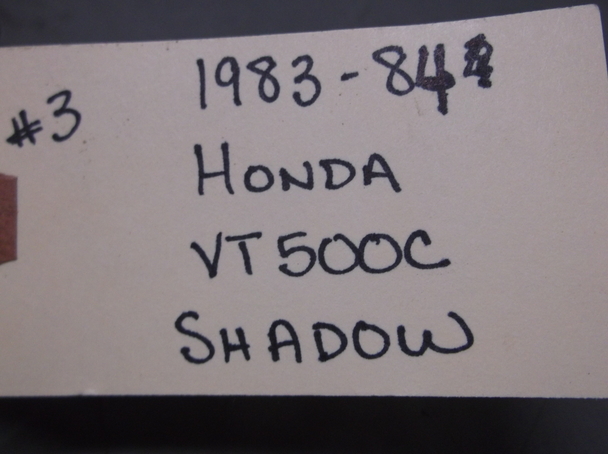 #3
1983-84
HONDA
VT500C
SHADOW